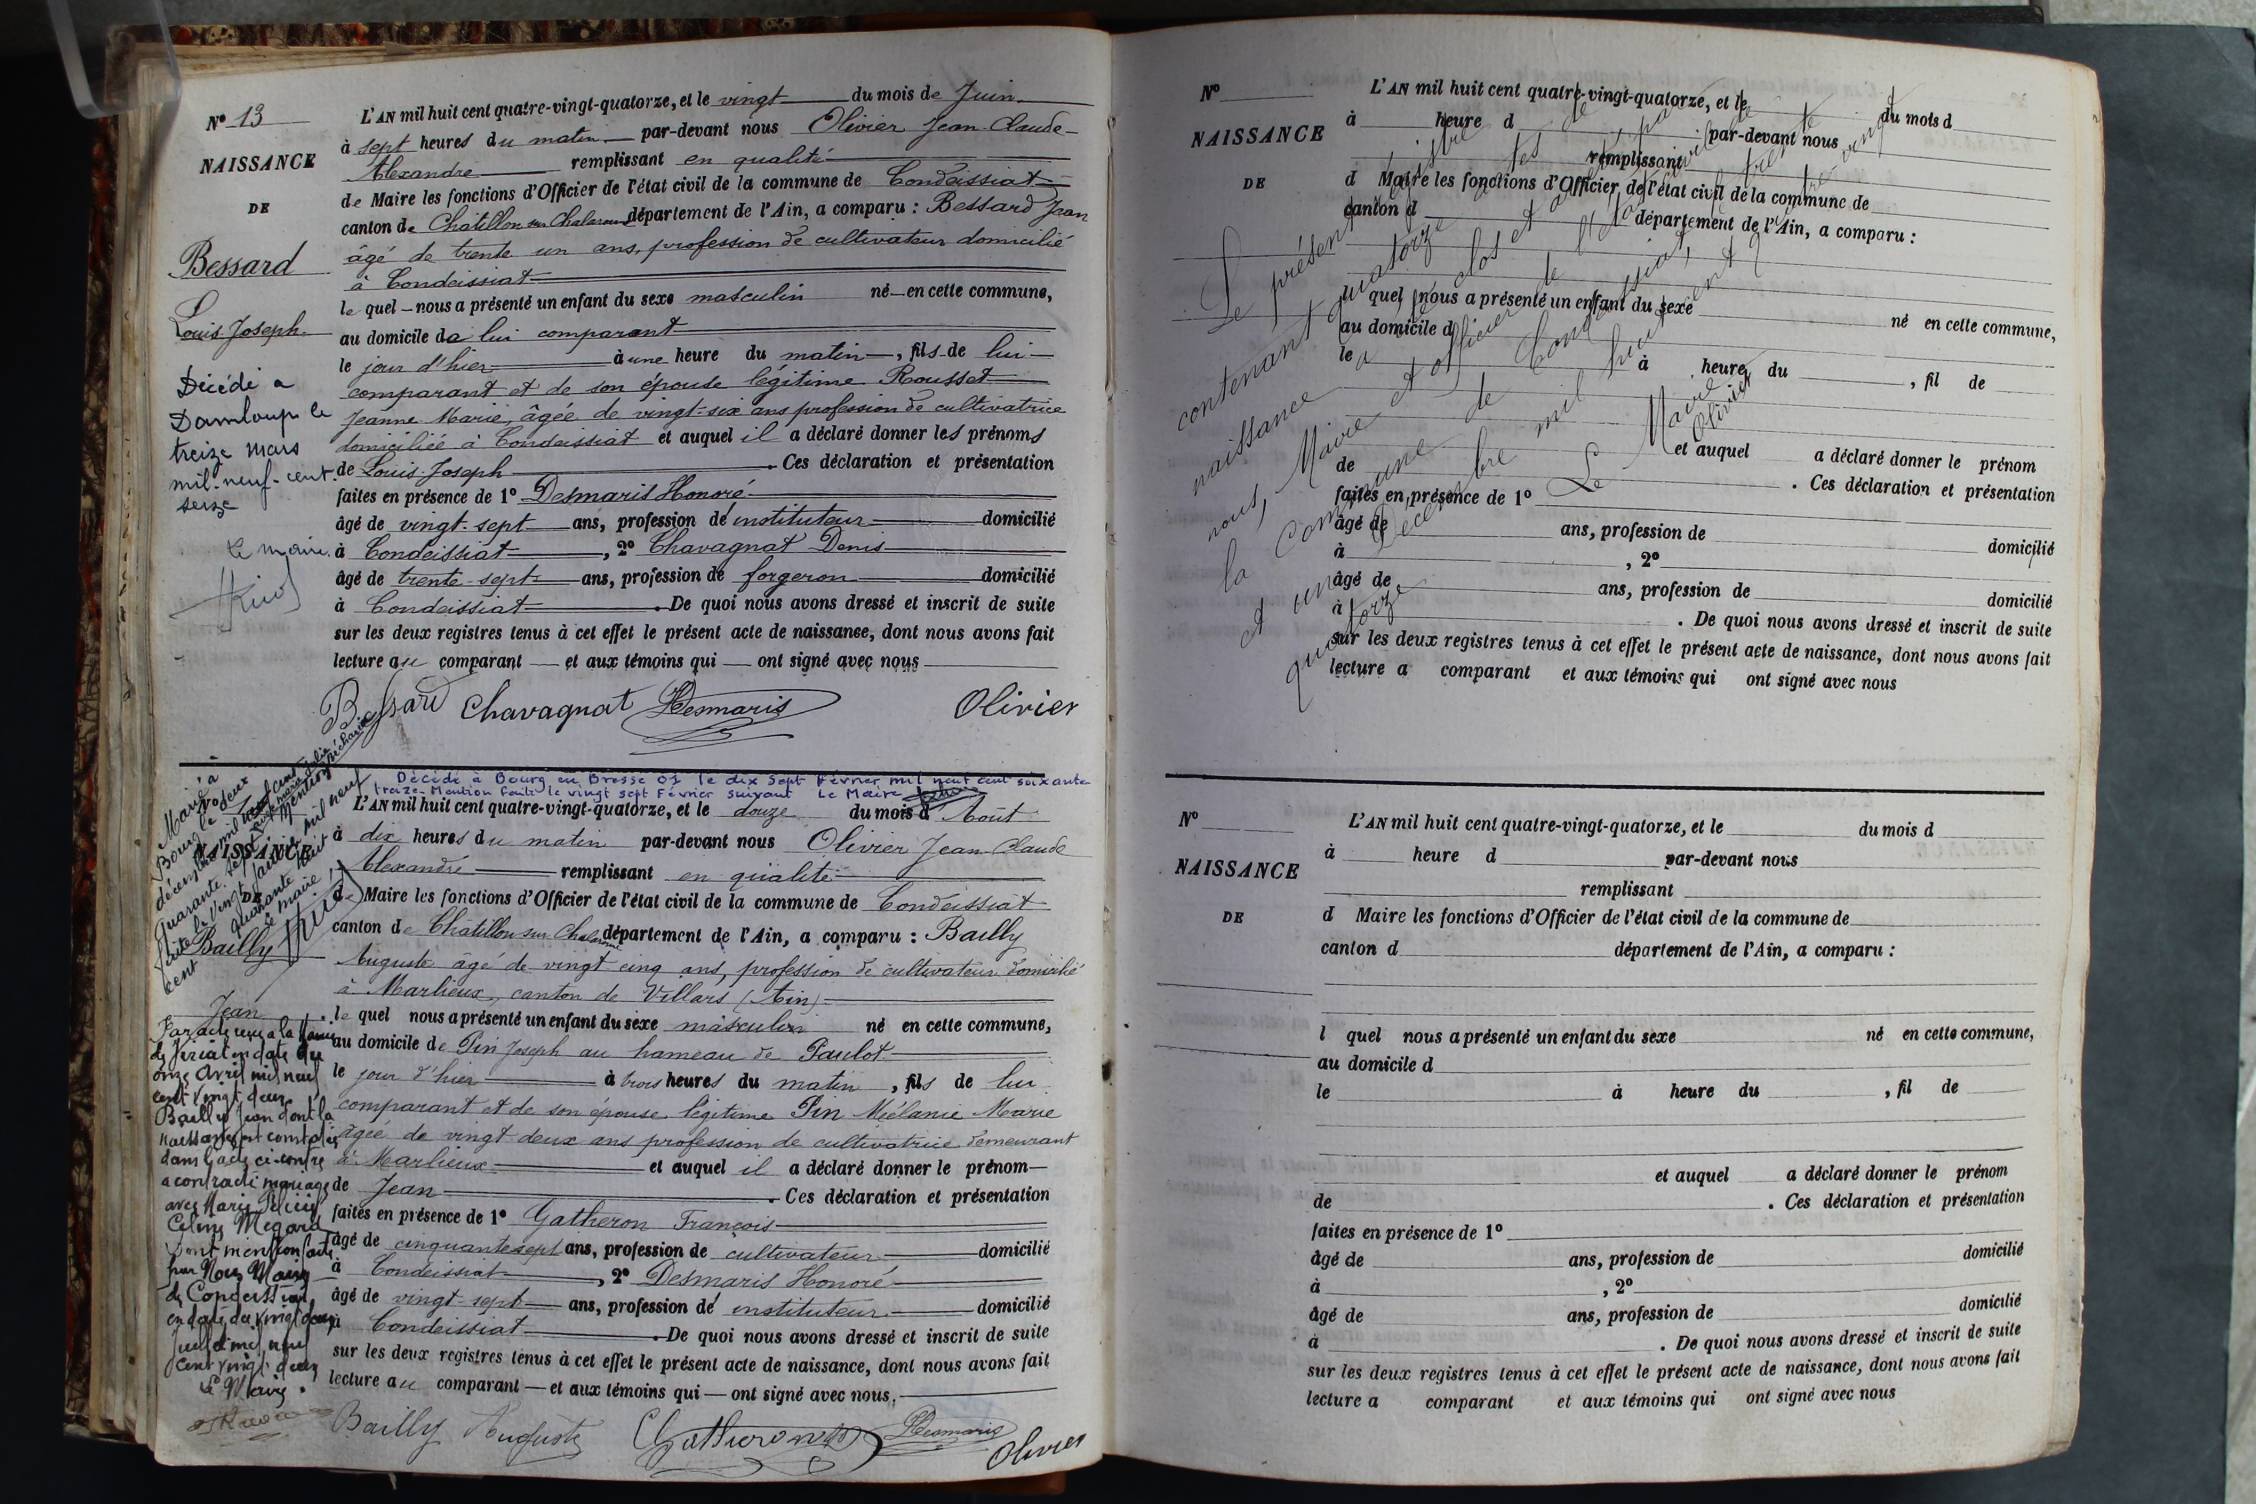 Nº 13
NAISSANCE
DE
Bessard
Louis Joseph
Décédé à
Damloup le
treize mars
mil-neuf-cent.
seize
Le maire
L'AN mil huit cent quatre-vingt-quatorze, et le vingt du mois de Juin
à sept heures du matin par-devant nous Olivier Jean-Claude-
Alexandre remplissant en qualité
de Maire les fonctions d'Officier de l'état civil de la commune de Condeissiat
canton de Châtillon sur Chalaronne département de l'Ain, a comparu : Bessard Jean
âgé de trente un ans, profession de cultivateur domicilié
à Condeissiat
le quel nous a présenté un enfant du sexe masculin né en cette commune,
au domicile de lui comparant
le jour d'hier à une heure du matin, fils de lui
comparant et de son épouse légitime Rousset
Jeanne Marie, âgée de vingt-six ans profession de cultivatrice
domiciliée à Condeissiat et auquel il a déclaré donner les prénoms
de Louis-Joseph. Ces déclaration et présentation
faites en présence de 1º Desmaris Honoré
âgé de vingt-sept ans, profession de instituteur domicilié
à Condeissiat, 2º Chavagnat Denis
âgé de trente-sept ans, profession de forgeron domicilié
à Condeissiat. De quoi nous avons dressé et inscrit de suite
sur les deux registres tenus à cet effet le présent acte de naissance, dont nous avons fait
lecture au comparant et aux témoins qui ont signé avec nous
Bessard Chavagnat Desmaris Olivier
Décédé à Bourg en Bresse 01 le dix sept Février mil neuf cent soixante
treize. Mention faite le vingt sept Février suivant Le Maire
Marié à
Bourg le deux
décembre mil neuf cent
quarante sept avec
faite le vingt janvier mil neuf
cent quarante huit
Le maire
NAISSANCE
DE
Bailly
Jean
Par acte reçu à la Mairie
en date du
onze Avril mil neuf
cent vingt deux
Bailly Jean dont la
naissance est constatée
dans l'acte ci-contre
a contracté mariage
avec Marie
Mégard
Dont mention faite
par Nous Maire
de Condeissiat
en date du vingt deux
mil neuf
cent vingt deux
Le Maire.
L'AN mil huit cent quatre-vingt-quatorze, et le douze du mois d'Août
à dix heures du matin par-devant nous Olivier Jean-Claude
Alexandre remplissant en qualité
de Maire les fonctions d'Officier de l'état civil de la commune de Condeissiat
canton de Châtillon sur Chalaronne département de l'Ain, a comparu : Bailly
Auguste âgé de vingt cinq ans, profession de cultivateur domicilié
à Marlieux, canton de Villars (Ain)
le quel nous a présenté un enfant du sexe masculin né en cette commune,
au domicile de Pin Joseph au hameau de Paulot
le jour d'hier à trois heures du matin, fils de lui
comparant et de son épouse légitime Pin Mélanie Marie
âgée de vingt deux ans profession de cultivatrice demeurant
à Marlieux et auquel il a déclaré donner le prénom
de Jean. Ces déclaration et présentation
faites en présence de 1º Gatheron François
âgé de cinquante sept ans, profession de cultivateur domicilié
à Condeissiat, 2º Desmaris Honoré
âgé de vingt-sept ans, profession de instituteur domicilié
à Condeissiat. De quoi nous avons dressé et inscrit de suite
sur les deux registres tenus à cet effet le présent acte de naissance, dont nous avons fait
lecture au comparant et aux témoins qui ont signé avec nous.
Bailly Auguste Gatheron Desmaris Olivier
Nº
NAISSANCE
DE
L'AN mil huit cent quatre-vingt-quatorze, et le du mois d
à heure d par-devant nous
remplissant
d Maire les fonctions d'Officier de l'état civil de la commune de
canton d département de l'Ain, a comparu :
l quel nous a présenté un enfant du sexe né en cette commune,
au domicile d
le à heure du , fil de
et auquel a déclaré donner le prénom
de . Ces déclaration et présentation
faites en présence de 1º
âgé de ans, profession de domicilié
à , 2º
âgé de ans, profession de domicilié
à . De quoi nous avons dressé et inscrit de suite
sur les deux registres tenus à cet effet le présent acte de naissance, dont nous avons fait
lecture a comparant et aux témoins qui ont signé avec nous
Le présent registre
contenant quatorze actes de
naissance a été clos et arrêté par
nous, Maire et officier de l'état civil de
la commune de Condeissiat, le trente
et un Décembre mil huit cent quatre-vingt
quatorze
Le Maire
Olivier
Nº
NAISSANCE
DE
L'AN mil huit cent quatre-vingt-quatorze, et le du mois d
à heure d par-devant nous
remplissant
d Maire les fonctions d'Officier de l'état civil de la commune de
canton d département de l'Ain, a comparu :
l quel nous a présenté un enfant du sexe né en cette commune,
au domicile d
le à heure du , fil de
et auquel a déclaré donner le prénom
de . Ces déclaration et présentation
faites en présence de 1º
âgé de ans, profession de domicilié
à , 2º
âgé de ans, profession de domicilié
à . De quoi nous avons dressé et inscrit de suite
sur les deux registres tenus à cet effet le présent acte de naissance, dont nous avons fait
lecture a comparant et aux témoins qui ont signé avec nous